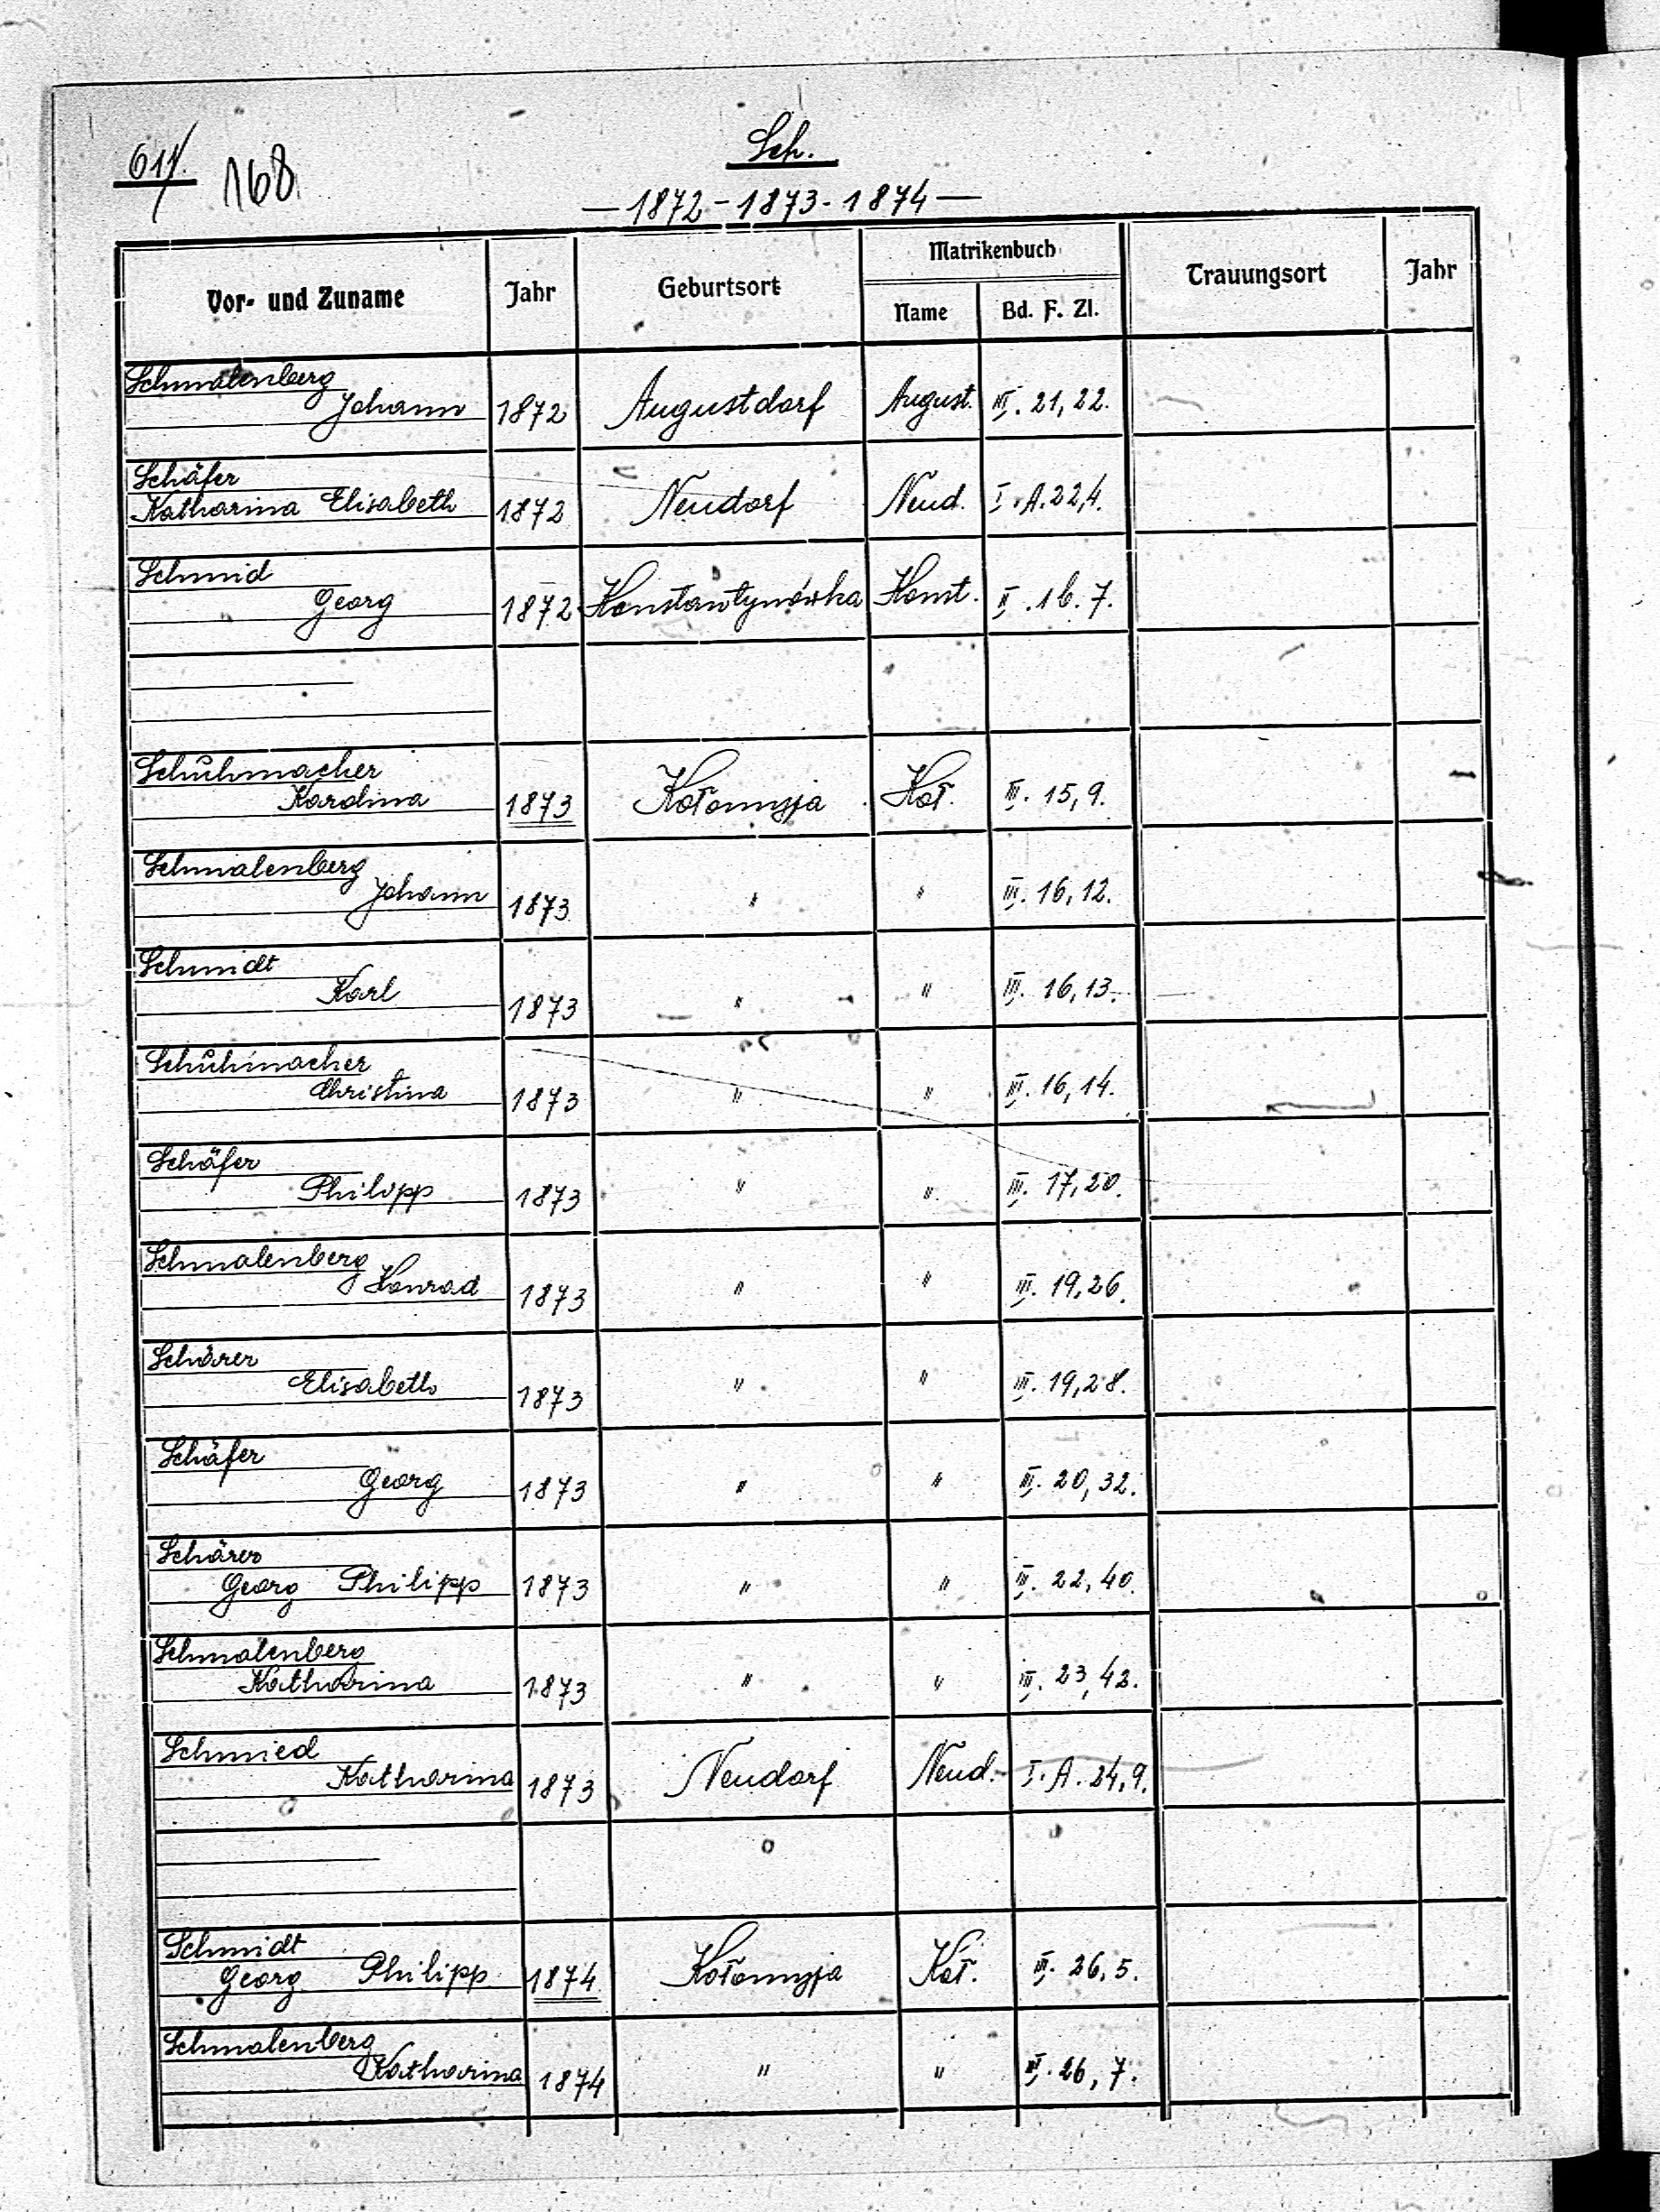 611. 168
Sch.
— 1872 - 1873 - 1874 —
Vor- und Zuname Jahr Geburtsort Matrikenbuch Name Bd. F. Zl. Trauungsort Jahr
Schmalenberg
Johann 1872 Augustdorf August. III. 21, 22.
Schäfer
Katharina Elisabeth 1872 Neudorf Neud. I. A. 22, 4.
Schmid
Georg 1872 Konstantynówka Konst. II. 16. 7.
Schuhmacher
Karolina 1873 Kołomyja Koł. III. 15, 9.
Schmalenberg
Johann 1873 " " III. 16, 12.
Schmidt
Karl 1873 " " III. 16, 13.
Schuhmacher
Christina 1873 " " III. 16, 14.
Schäfer
Philipp 1873 " " III. 17, 20.
Schmalenberg
Konrad 1873 " " III. 19, 26.
Schärer
Elisabeth 1873 " " III. 19, 28.
Schäfer
Georg 1873 " " III. 20, 32.
Schärer
Georg Philipp 1873 " " III. 22, 40.
Schmalenberg
Katharina 1873 " " III. 23, 42.
Schmied
Katharina 1873 Neudorf Neud. I. A. 24, 9.
Schmidt
Georg Philipp 1874 Kołomyja Koł. III. 26, 5.
Schmalenberg
Katharina 1874 " " III. 26, 7.